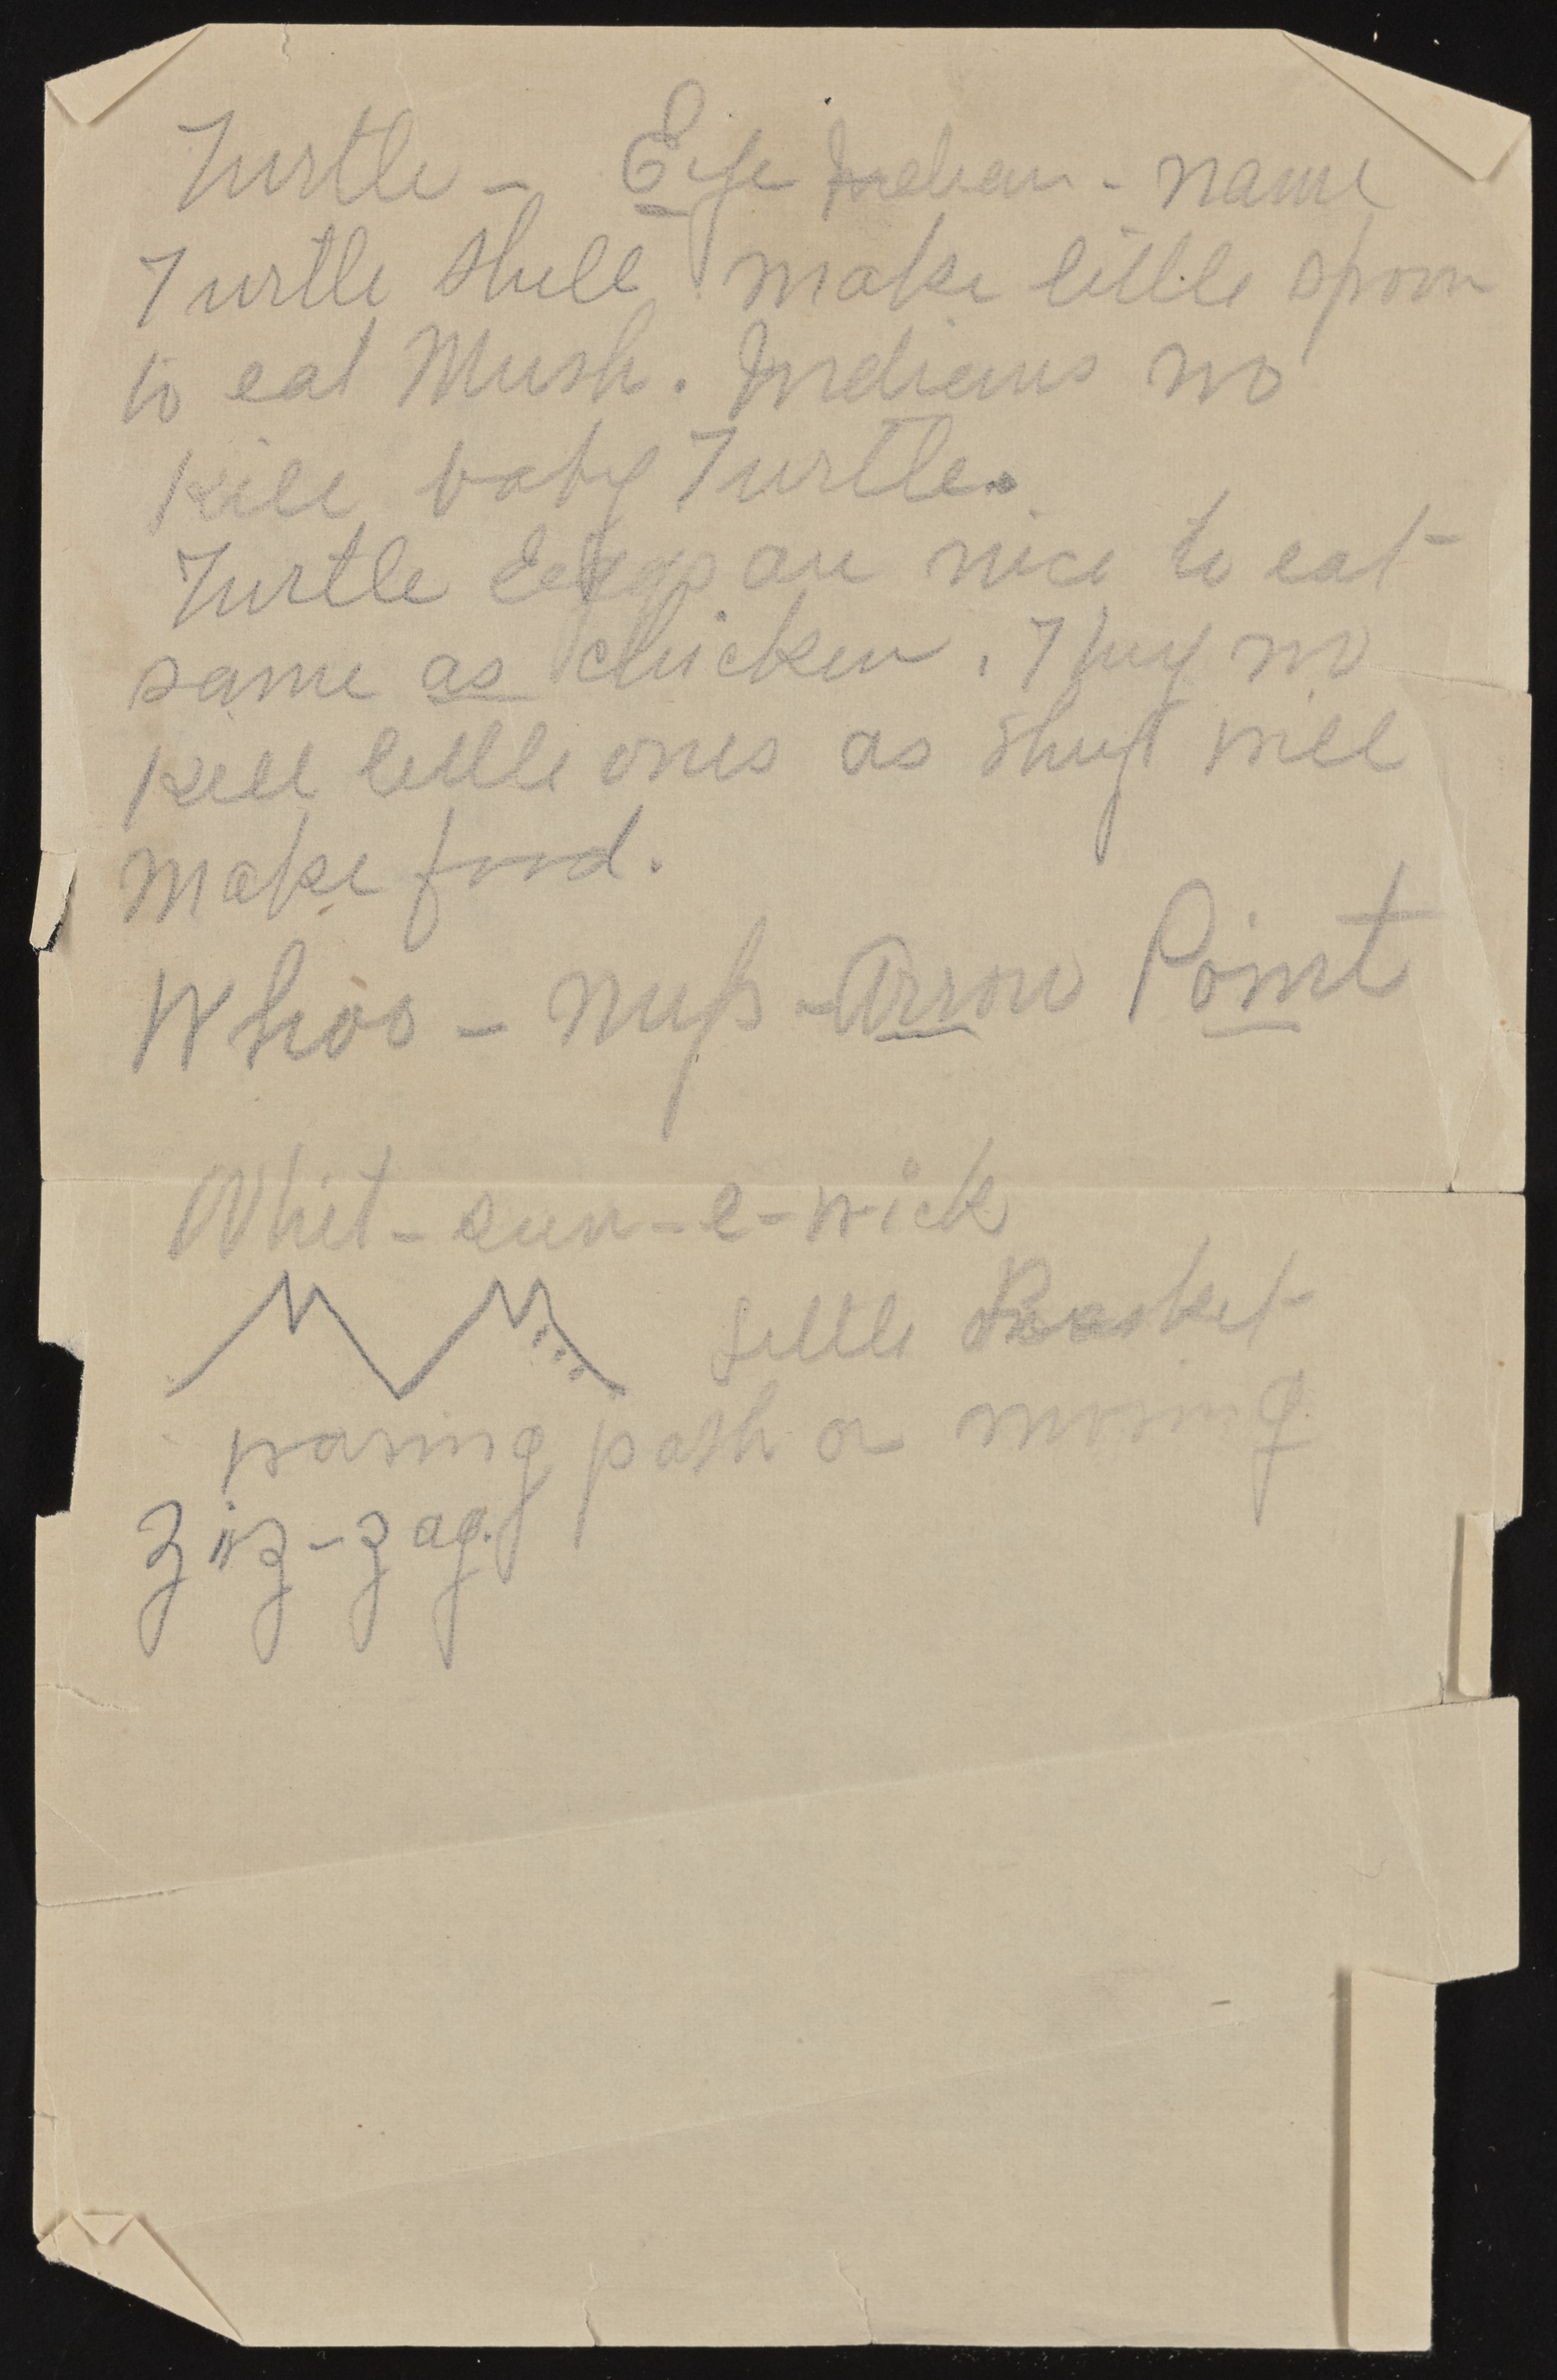 Turtle - Eye Indian - name
Turtle shell make little spoon
to eat Mush. Indians no
kill baby Turtle.
Turtle Eggs are nice to eat
same as chicken. They no
kill little ones as they will
make food.
Whoo - nup - Arrow Point
Whit - sun - e - wick
Little Basket
waving path or moving
Ziz-zag.